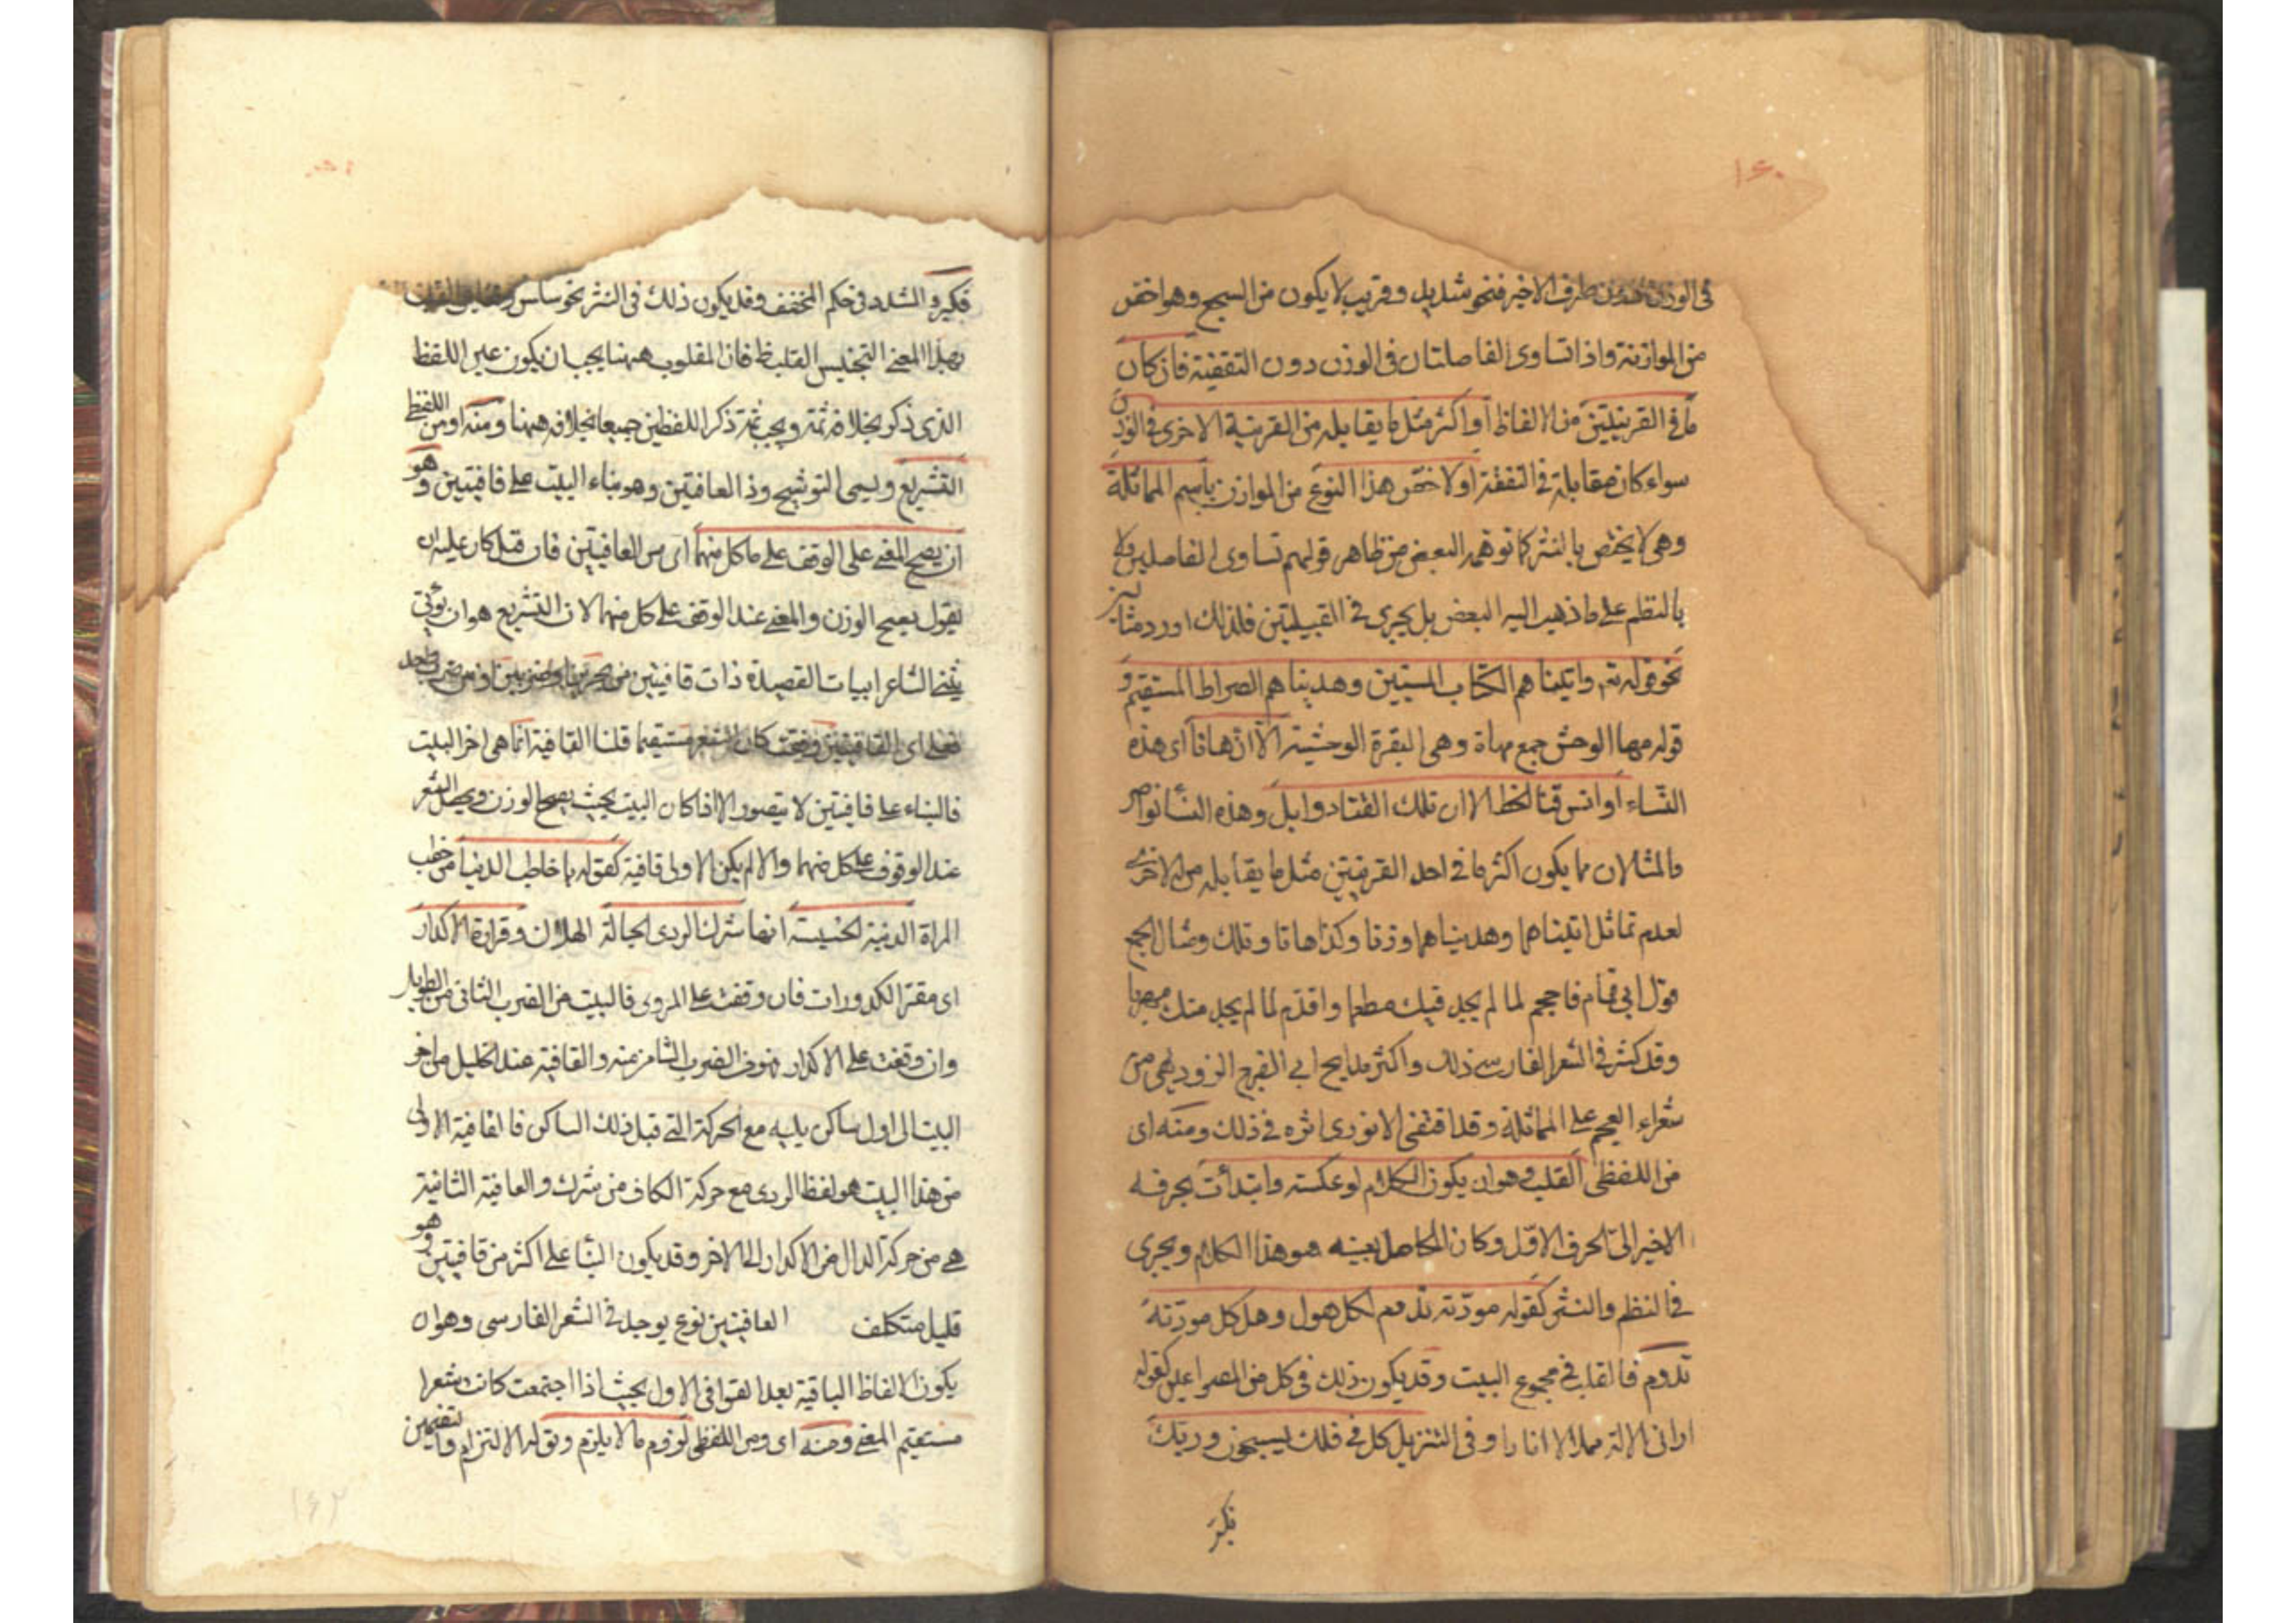 ١٤٠
فى الوزن دون طرف الاخير فنحو شديد وقريب لا يكون من السجع وهو اخص
من الموازنة واذا تساوى الفاصلتان فى الوزن دون التقفية فان كان
ما فى القرينتين من الالفاظ او اكثر مثل ما يقابله من القرينة الاخرى فى الوزن
سواء كان مقابلة فى التقفية او لا خص هذا النوع من الموازنة باسم المماثلة
وهى لا يختص بالنثر كما توهمه البعض من ظاهر قولهم تساوى الفاصلتين ولا
بالنظم على ما ذهب اليه البعض بل يجرى فى القبيلتين فلذلك اورد مثالين
نحو قوله تعم واتيناهم الكتاب المستبين وهديناهم الصراط المستقيم و
قوله مها الوحش جمع مهاة وهى البقرة الوحشية الا ان هاتا اى هذه
النساء اوانس قنا الخط الا ان تلك القنا ذوابل وهذه النسا نواضر
فالمثالان مما يكون اكثر ما فى احد القرينتين مثل ما يقابله من الاخرى
لعدم تماثل اتيناهما وهديناهما وزنا وكذا هاتا وتلك ومثال الجمع
قول ابى تمام فاحجم لما لم يجد فيك مطعما واقدم لما لم يجد منك مهربا
وقد كثر فى الشعر الفارسى ذلك واكثر مدايح ابى الفرج الرودى من
شعراء العجم على المماثلة وقد اقتفى الانورى اثره فى ذلك ومنه اى
من اللفظى القلب وهو ان يكون الكلام لو عكسته وابتدأت بحرفه
الاخير الى الحرف الاول وكان الحاصل بعينه هو هذا الكلام ويجرى
فى النظم والنثر كقوله مودّته تدوم لكل هول وهل كل مودّته
تدوم فالقلب فى مجموع البيت وقد يكون ذلك فى كل من المصراعين كقوله
ارانى الاله هلالا انارا وفى التنزيل كل فى فلك يسبحون وربك
فكبر
فكبر والمشدد فى حكم المخفف وقد يكون ذلك فى النثر نحو ساس
بهذا المعنى التجنيس القلب ظ فان المقلوب ههنا يجب ان يكون عين اللفظ
الذى ذكر بخلافه ثمة ويجب ثمة ذكر اللفظين جميعا بخلافه ههنا ومنه اى ومن اللفظى
التشريع ويسمى التوشيح وذا القافيتين وهو بناء البيت على قافيتين وهو
ان يصح المعنى على الوقف على ما كل منهما اى من القافيتين فان قيل كان عليه ان
يقول يصح الوزن والمعنى عند الوقف على كل منهما لان التشريع هو ان يؤتى
يبنى الشاعر ابيات القصيدة ذات قافيتين من بحرين او ضربين من بحر واحد
فعلى اى القافيتين وقفت كان الشعر مستقيما قلنا القافية انما هى اخر البيت
فالبناء على قافيتين لا يتصور الا اذا كان البيت بحيث يصح الوزن ويحصل الشعر
عند الوقوف على كل منهما والا لم يكن الاولى قافية كقوله يا خاطب الدنيا من خطب
المراة الدنية الخسيسة انها شرك الردى حبالة الهلاك وقرارة الاكدار
اى مقر الكدورات فان وقفت على الردى فالبيت من الضرب الثانى من الطويل
وان وقفت على الاكدار فهو من الضرب الثامن منه والقافية عند الخليل من اخر
البيت الى اول ساكن يليه مع الحركة التى قبل ذلك الساكن فالقافية الاولى
من هذا البيت هو لفظ الردى مع حركة الكاف من شرك والقافية الثانية
هى من حركة الدال من الاكدار الى الاخر وقد يكون البنا على اكثر من قافيتين وهو
قليل متكلف القافيتين نوع يوجد فى الشعر الفارسى وهو ان
يكون الالفاظ الباقية بعد القوافى الاول بحيث اذا اجتمعت كانت شعرا
مستقيم المعنى ومنه اى ومن اللفظى لزوم ما لا يلزم ويق له الالتزام والتضمين
١٤٢